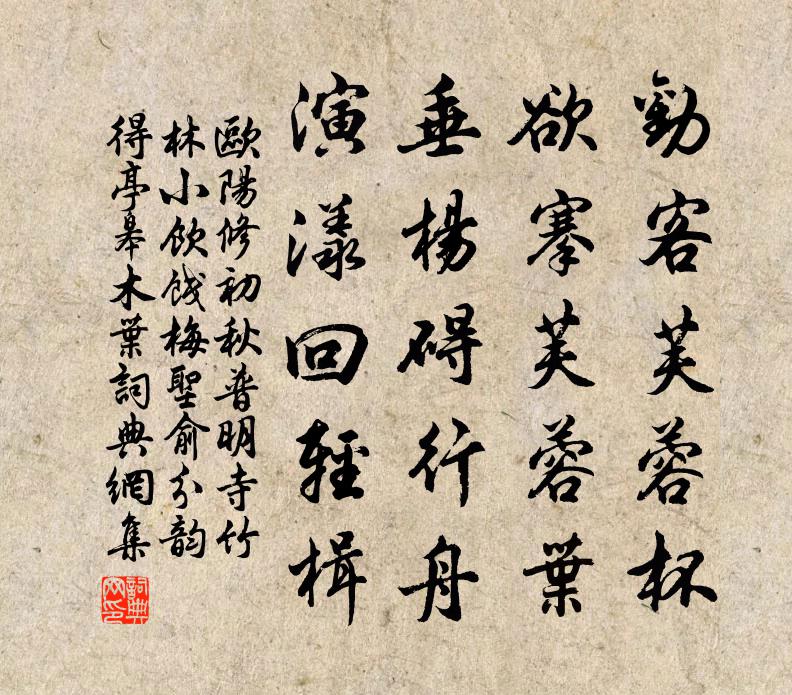 勸客芙蓉杯
欲搴芙蓉葉
垂楊碍行舟
演漾回輕楫
歐陽修初秋普明寺竹
林小飲餞梅聖俞分韵
得亭皋木葉詞典網集
詞典
网印